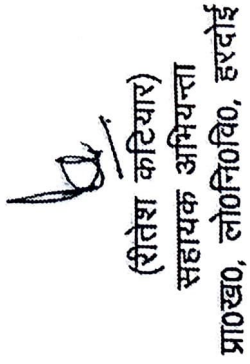 (रीतेश कटियार)
सहायक अभियन्ता
प्रा०ख०, लो०नि०वि०, हरदोई